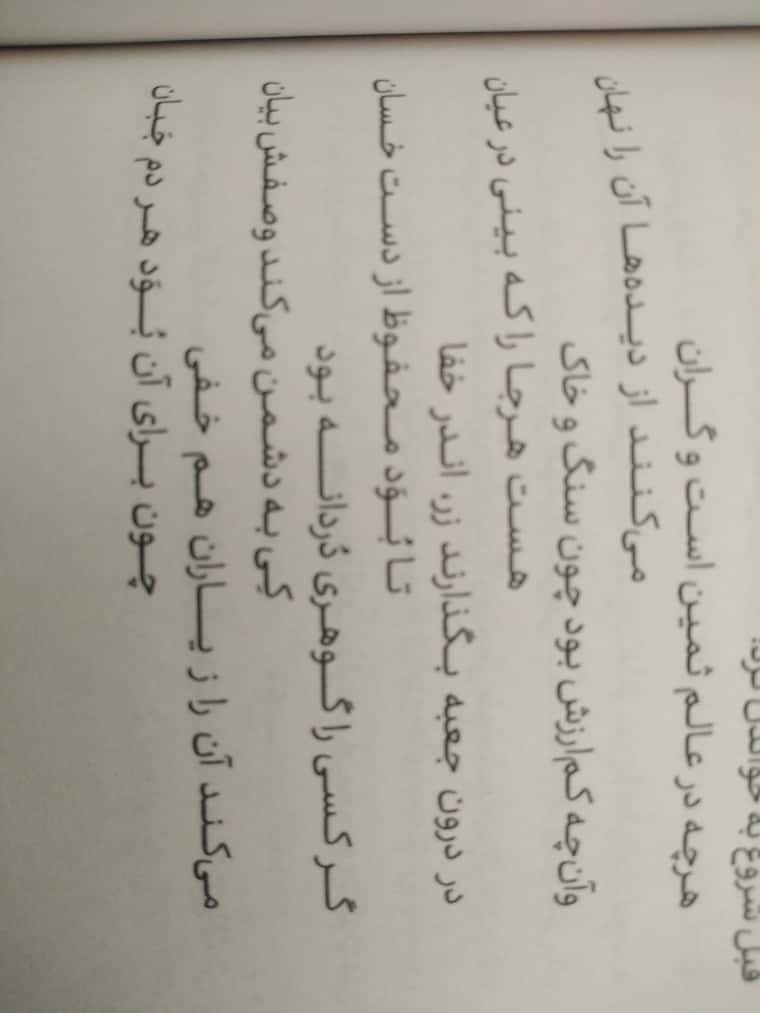 قبل شروع به خواندن کرد:
هرچه در عالم ثمین است و گران
می‌کنند از دیده‌ها آن را نهان
وآن‌چه کم‌ارزش بود چون سنگ و خاک
هست هرجا را که بینی در عیان
در درون جعبه بگذارند زر، اندر خفا
تا بُوَد محفوظ از دست خسان
گر کسی را گوهری دُردانه بود
کِی به دشمن می‌کند وصفش بیان
می‌کند آن را ز یاران هم خفی
چون برای آن بُوَد هر دم ضبان